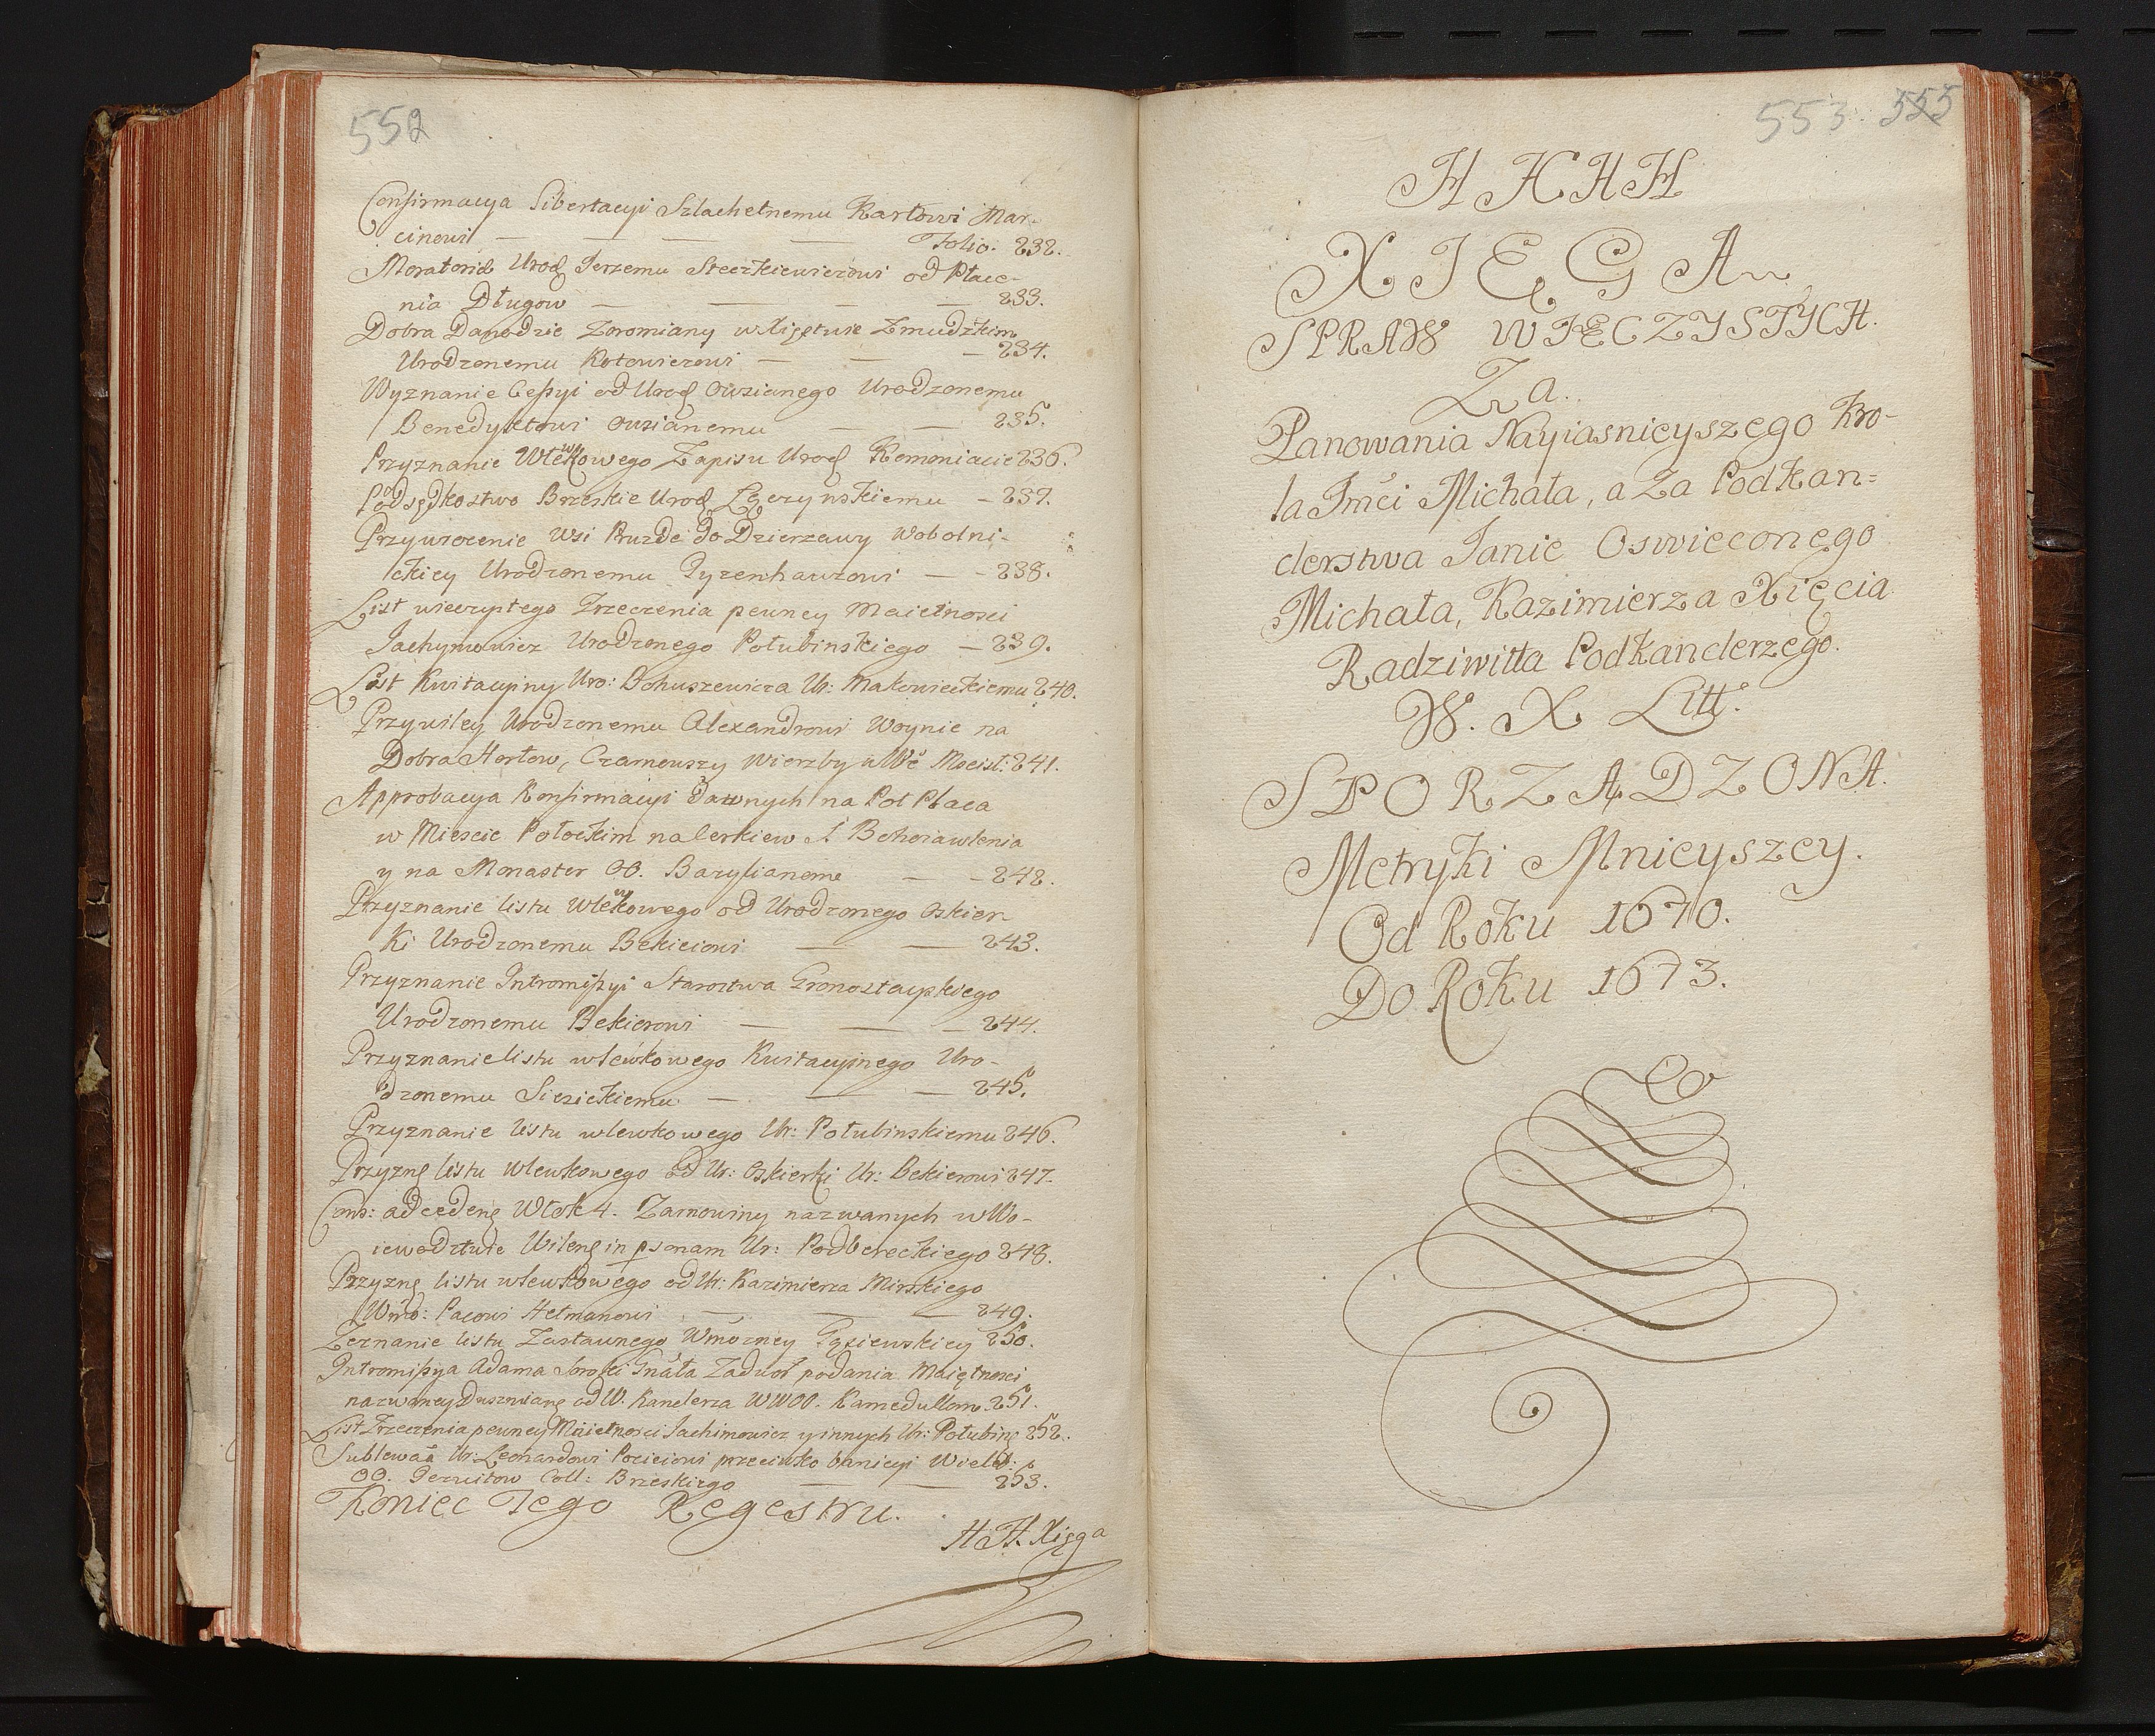 552
Confirmacya Libertacyi Szlachetnemu Karłowi Mar-
cinowi — — — — Folio. 232.
Moratorid Urod Jerzemu Steczkiewiczowi od Płace-
nia Długow — — — — 233.
Dobra Danodzie Zoromiany w Xięstwie Zmudzkim
Urodzonemu Kotowiczowi — — — 234.
Wyznanie Cessyi od Urod Owsianego Urodzonemu
Benedyktowi Owsianemu — — 235.
Przyznanie Wlewkowego Zapisu Urod Kemoniacie 236.
Podsędkostwo Brzeskie Urod Lęczynskiemu — 237.
Przywrocenie Wsi Pruzde do Dzierzawy Wobolni-
ckiey Urodzonemu Tyzenhauzowi — — 238.
List wieczystego Zrzeczenia pewney Maietnosci
Jachymowicz Urodzonego Połubinskiego — 239.
List Kwitacyiny Uro: Bohuszewicza Ur: Makowieckiemu 240.
Przywiley Urodzonemu Alexandrowi Woynie na
Dobra Hortow, Czarneuszy Wierzby w Wě Mscisł: 241.
Approbacya Konfirmacyi dawnych na Poł Placa
w Miescie Połockim na Cerkiew S Bohoiawlenia
y na Monaster OO. Bazylianom — — 242.
Przyznanie listu Wlewkowego od Urodzonego Oskier
ki Urodzonemu Bekierowi — — 243.
Przyznanie Intromissyi Starostwa Gronostayskiego
Urodzonemu Bekierowi — — — 244.
Przyznanie listu wlewkowego Kwitacyinego Uro-
dzonemu Siesickiemu — — — 245.
Przyznanie listu wlewkowego Ur: Połubinskiemu 246.
Przyzně listu Wlewkowego od Ur: Oskierki Ur: Bekierowi 247.
Cons: ad cedenḡ Włok 4. Zarnowiny nazwanych w Wo-
iewodztwie Wileng in psonam Ur: Podbereckiego 248.
Przyzně listu wlewkowego od Ur: Kazimierza Mirskiego
Wmo: Pacowi Hetmanowi — — — 249.
Zeznanie listu Zastawnego Wmozney Gąsiewskiey 250.
Intromissya Adama Soroki Gnata Zadwor podania Maiętnosci
nazwaney Duszniane od W. Kanclerza WWOO. Kamedullom 251.
List Zrzeczenia pewney Maietnosci Jachimowicz y innych Ur: Połubinę 252.
Sublewaā Ur: Leonardowi Pocieiowi przeciwko banicyi Wieleb:
OO. Jezuitow Coll: Brzeskiego — — 253.
Koniec Tego Regestru.
HH. Xięga
553. 555
HHHH
XIĘGA
SPRAW WIECZYSTYCH.
Za.
Panowania Nayiasnieyszego Kro-
la Jmći Michała, a Za Podkan=
clerstwa Janie Oswieconego
Michała, Kazimierza Xięcia
Radziwiłła Podkanclerzego.
W. X Litt.
SPORZĄDZONA.
Metryki Mnieyszey.
Od Roku 1670.
Do Roku 1673.